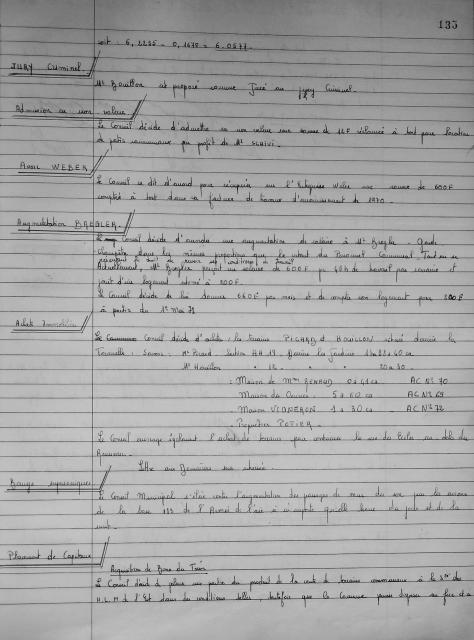 135
soit : 6,2255 - 0,1678 = 6.0577.
JURY Criminel.
Mr Bouillon est proposé comme Juré au jury Criminel.
Admission en non valeur
Le Conseil décide d'admettre en non valeur une somme de 12F réclamée à tort pour location
de patis communaux au profit de Mr SCHIVI.
Avoir WEBER
Le Conseil se dit d'accord pour récupérer sur l'Entreprise Weber une somme de 600F
comptée à tort dans sa facture de travaux d'assainissement de 1970.
Augmentation BREGLER
Le Conseil décide d'accorder une augmentation de salaire à Mr Bregler - Garde
Champêtre dans les mêmes proportions que le retard du Personnel Communal. Tout en se
Actuellement, Mr Bregler perçoit un salaire de 600F pr 40h de travail par semaine et
jouit d'un logement estimé à 200F.
Le Conseil décide de lui donner 660F par mois et de compter son logement pour 200F
à partir du 1er Mai 71
Achats Immobiliers
Le Conseil décide d'acheter : les terrains PICARD et HOUILLON situés derrière la
Tournelle : Savoir : Mr Picard section AH 19. Derrière les Jardins
Mr Houillon
- Maison de Mme RENAUD 0a 41ca AC No 70
- Maison du 5a 60ca AC No 69
- Maison VIGNERON 1a 30ca AC No 72
- Propriétés POTIER.
Le Conseil envisage également l'achat de terrains pour continuer la rue des Ecoles au delà du
Ruisseau.
Lettre aux Domaines sera adressée.
Bangs supersoniques
Le Conseil Municipal s'élève contre l'augmentation des passages de murs du son par les avions
de la base 133 de l'Armée de l'air à n'importe quelle heure du jour et de la
nuit.
Placement de Capitaux
Acquisition de Bons du Trésor
Le Conseil décide de placer une partie du produit de la vente de terrains communaux à la Sté des
H.L.M de l'Est dans des conditions telles, toutefois que la Commune puisse disposer au fur et à